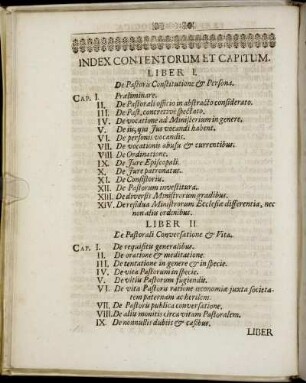 INDEX CONTENTORUM ET CAPITUM.
LIBER I.
De Pastoris Constitutione & Persona.
CAP. I. Præliminare.
II. De Pastorali officio in abstracto considerato.
III. De Past. concretive spectato.
IV. De vocatione ad Ministerium in genere.
V. De iis, qui Jus vocandi habent.
VI. De personis vocandis.
VII. De vocationis abusu & currentibus.
VIII. De Ordinatione.
IX. De Jure Episcopali.
X. De Jure patronatus.
XI. De Consistoriis.
XII. De Pastorum investitura.
XIII. De diversis Ministrorum gradibus.
XIV. De residua Ministrorum Ecclesiæ differentia, nec
non aliis ordinibus.
LIBER II.
De Pastorali Conversatione & Vita.
CAP. I. De requisitis generalibus.
II. De oratione & meditatione.
III. De tentatione in genere & in specie.
IV. De vita Pastorum in specie.
V. De vitiis Pastorum fugiendis.
VI. De vita Pastoris ratione œconomiæ juxta societa-
tem paternam ac herilem.
VII. De Pastoris publica conversatione.
VIII. De aliis monitis circa vitam Pastoralem.
IX. De nonnullis dubiis & casibus.
LIBER